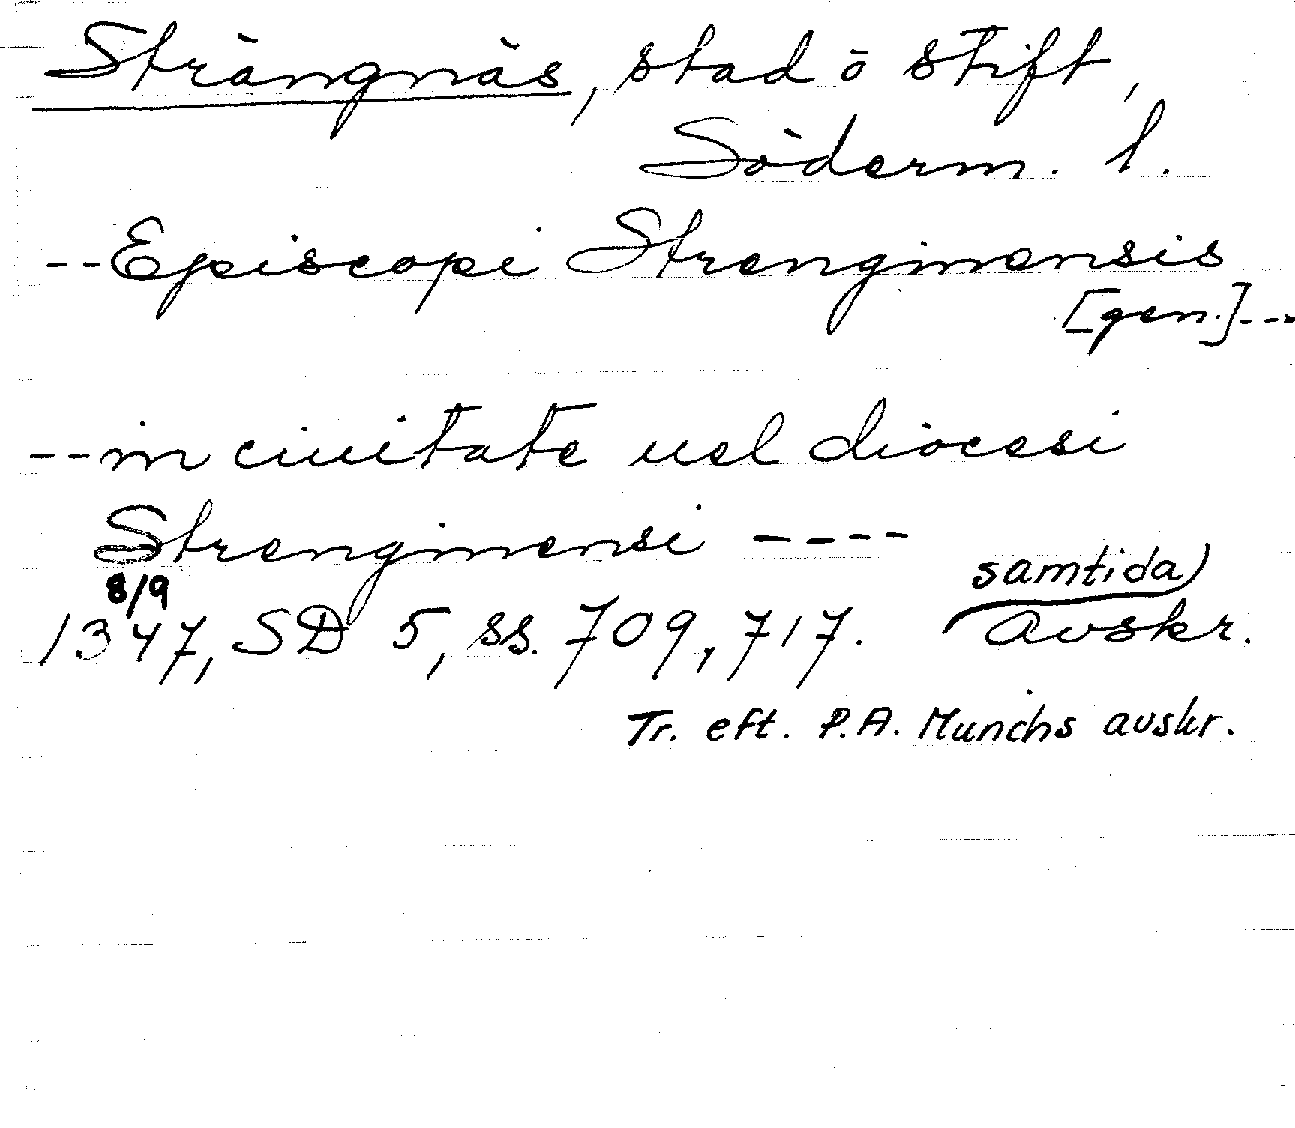 Strängnäs, stad o stift,
Söderm. l.
--Episcopi Strenginensis
[gen.]---
--in ciuitate uel diocesi
Strenginensi ----
8/9
1347, SD 5, ss. 709, 717. samtida) avskr.
Tr. eft. P.A. Munchs avskr.